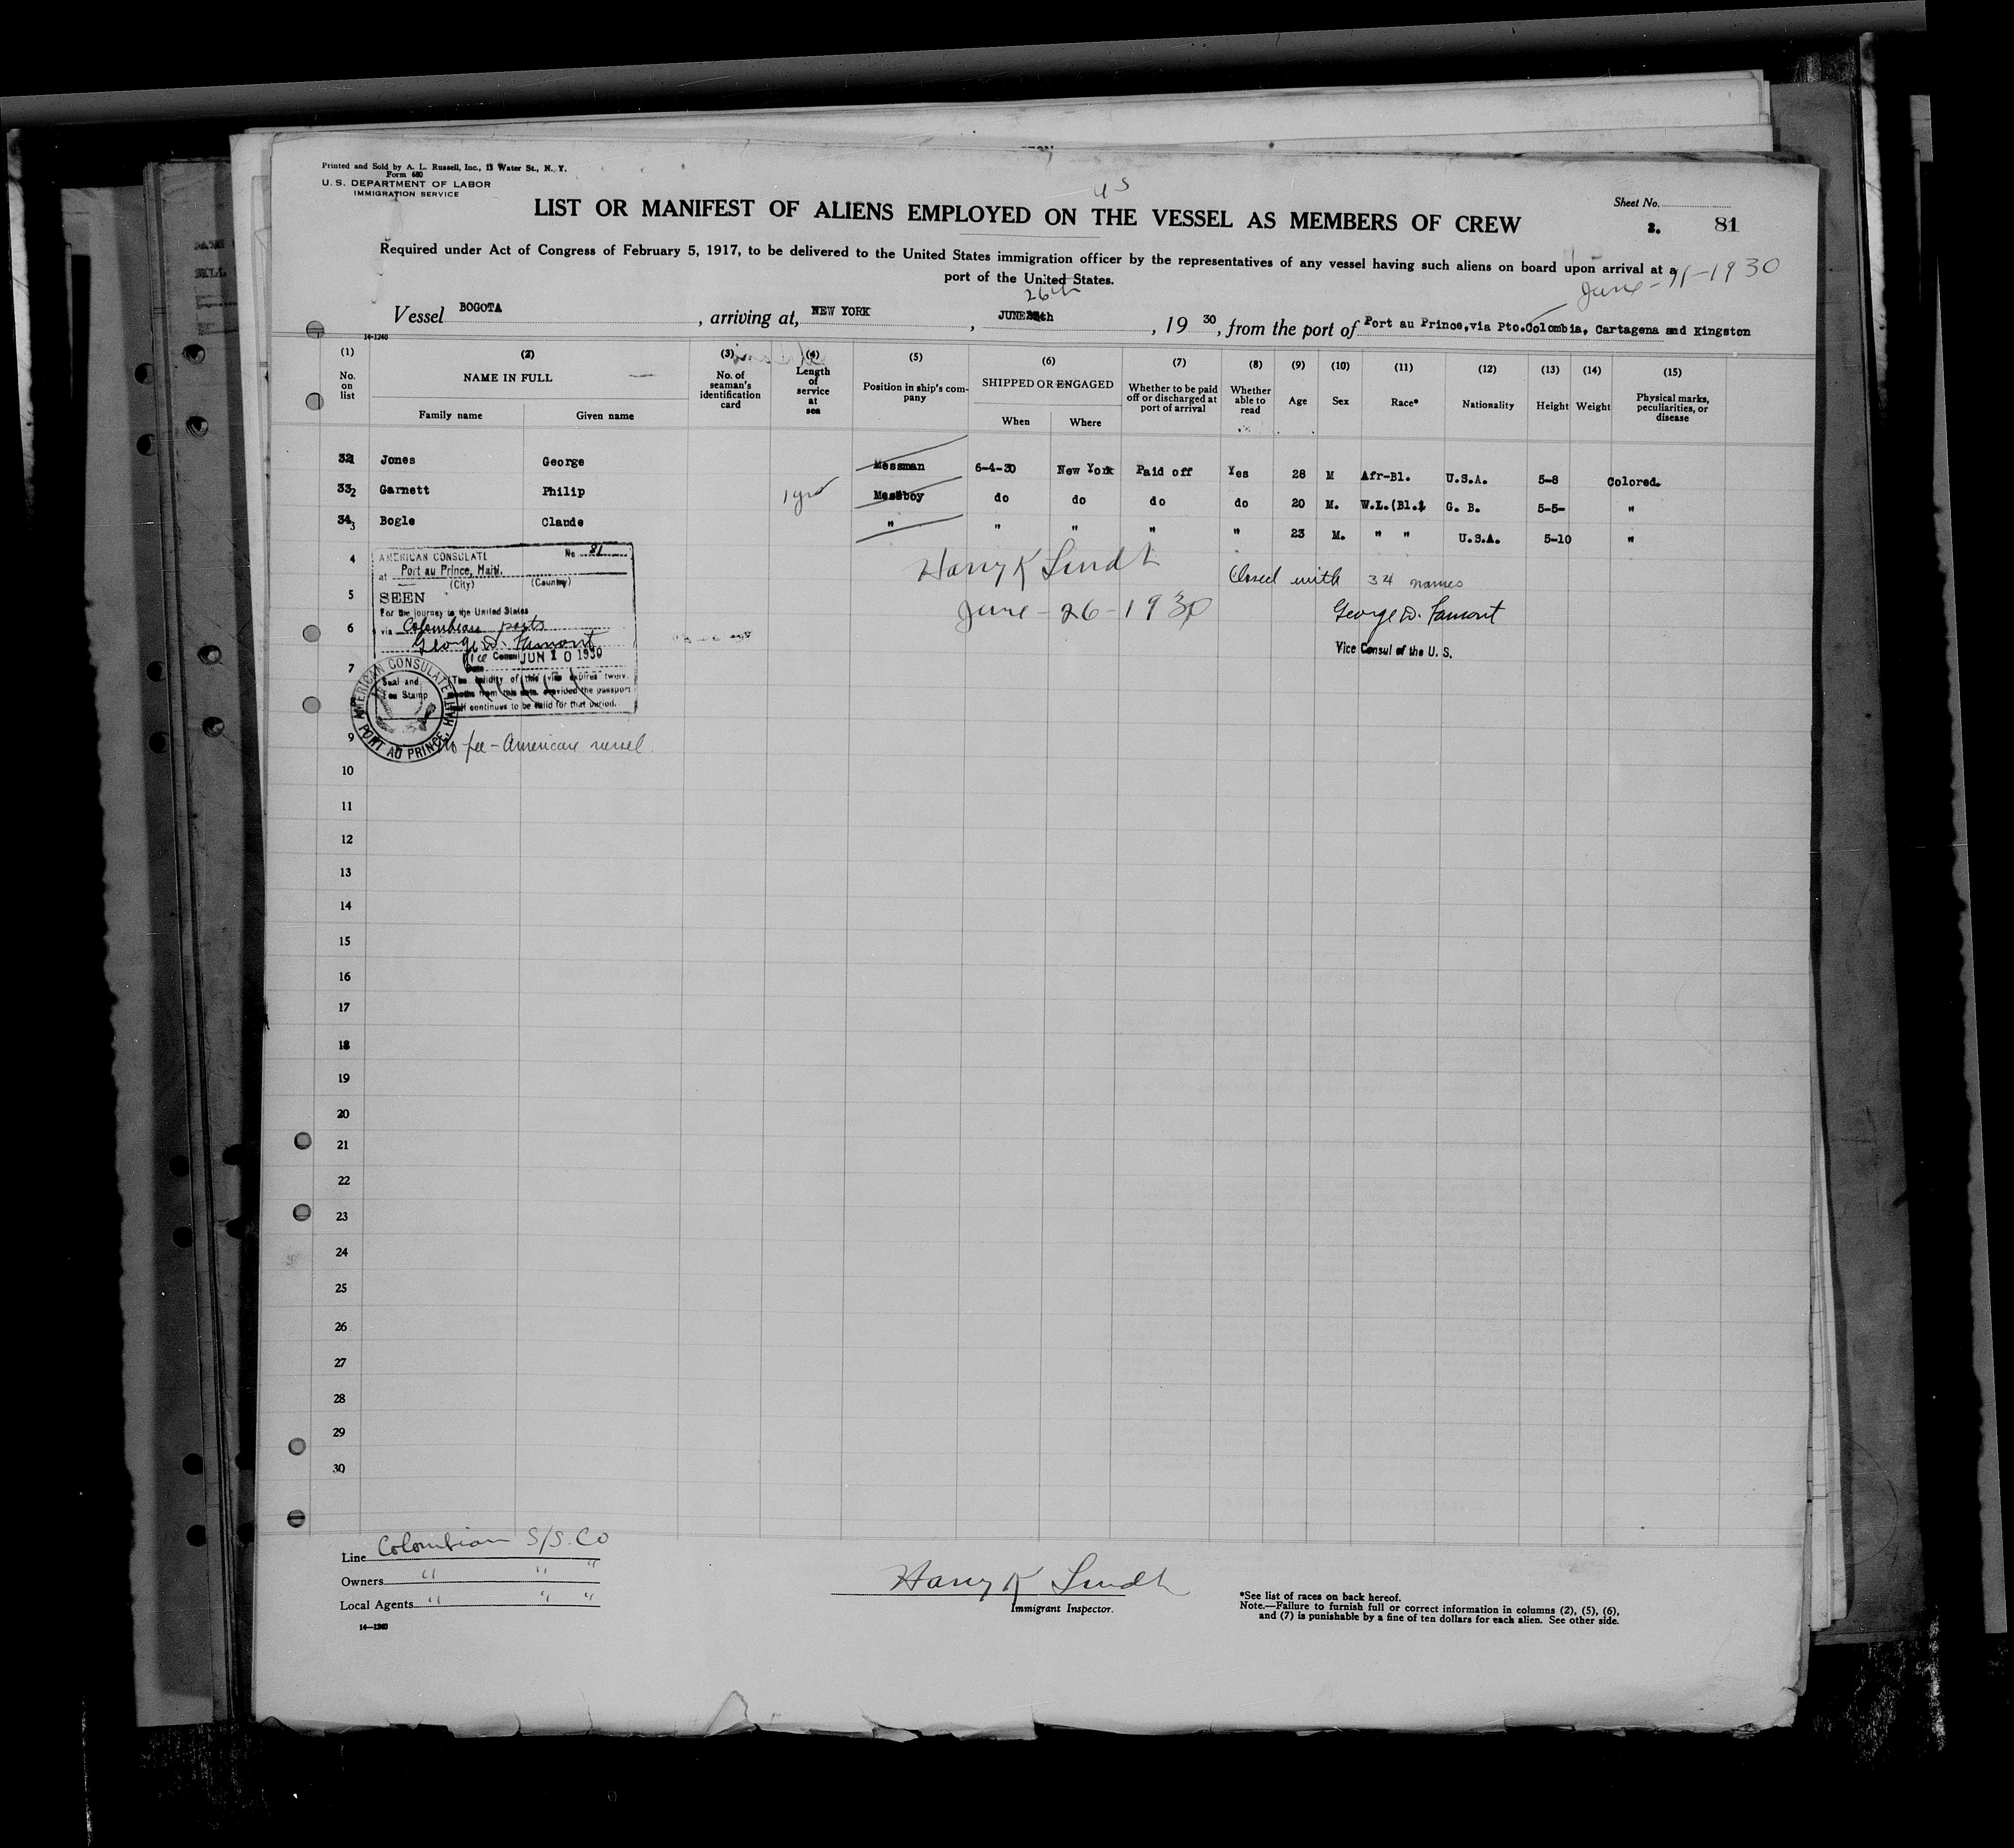 Printed and Sold by A. L. Russell, Inc., 13 Water St., N. Y.
Form 680
U. S. DEPARTMENT OF LABOR
IMMIGRATION SERVICE
U S
LIST OR MANIFEST OF ALIENS EMPLOYED ON THE VESSEL AS MEMBERS OF CREW
Sheet No.
2. 81
Required under Act of Congress of February 5, 1917, to be delivered to the United States immigration officer by the representatives of any vessel having such aliens on board upon arrival at a
port of the United States.
June-11-1930
26th
Vessel BOGOTA, arriving at, NEW YORK, JUNE, 19 30, from the port of Port au Prince, via Pto. Colombia, Cartagena and Kingston
14-1240
(1) (2) (3) (4) (5) (6) (7) (8) (9) (10) (11) (12) (13) (14) (15)
No. on list NAME IN FULL No. of seaman's identification card Length of service at sea Position in ship's company SHIPPED OR ENGAGED Whether to be paid off or discharged at port of arrival Whether able to read Age Sex Race* Nationality Height Weight Physical marks, peculiarities, or disease
Family name Given name When Where
32 1 Jones George Messman 6-4-30 New York Paid off Yes 28 M Afr-Bl. U.S.A. 5-8 Colored.
33 2 Garnett Philip 1 yr Messboy do do do do 20 M. W.I.(Bl.) G. B. 5-5- "
34 3 Bogle Claude " " " " " 23 M. " " U.S.A. 5-10 "
4
AMERICAN CONSULATE No 81
at Port au Prince, Haiti.
(City) (Country)
SEEN
For the journey to the United States
via Colombian ports
George D. Lamont
Vice Consul
Date JUN 10 1930
Seal and
Fee Stamp
The validity of this visa expires twelve
months from this date, provided the passport
itself continues to be valid for that period.
AMERICAN CONSULATE PORT AU PRINCE, HAITI
No fee - American vessel.
Harry K Lindt
June-26-1930
Closed with 34 names
George D. Lamont
Vice Consul of the U. S.
5
6
7
9
10
11
12
13
14
15
16
17
18
19
20
21
22
23
24
25
26
27
28
29
30
Line Colombian S/S. Co
Owners " " "
Local Agents " " "
14—1240
Harry K Lindt
Immigrant Inspector.
*See list of races on back hereof.
Note.—Failure to furnish full or correct information in columns (2), (5), (6),
and (7) is punishable by a fine of ten dollars for each alien. See other side.